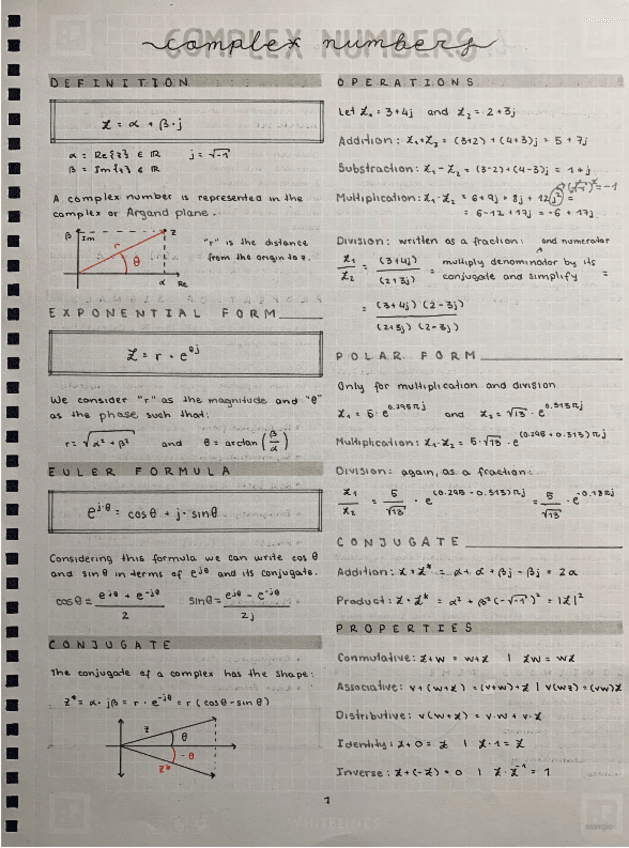 COMPLEX NUMBERS
complex numbers
DEFINITION
z = α + β·j
α = Re{z} ∈ ℝ j = √-1
β = Im{z} ∈ ℝ
A complex number is represented in the
complex or Argand plane.
β Im z
r
θ
α Re
"r" is the distance
from the origin to z.
EXPONENTIAL FORM
z = r · e^θj
We consider "r" as the magnitude and "θ"
as the phase such that:
r = √(α² + β²) and θ = arctan (β/α)
EULER FORMULA
e^j·θ = cosθ + j·sinθ
Considering this formula we can write cos θ
and sin θ in terms of e^jθ and its conjugate.
cosθ = (e^jθ + e^-jθ)/2 sinθ = (e^jθ - e^-jθ)/2j
CONJUGATE
The conjugate of a complex has the shape:
z* = α - jβ = r · e^-jθ = r (cosθ - sinθ)
z θ
-θ
z*
OPERATIONS
Let z₁ = 3+4j and z₂ = 2+3j
Addition: z₁+z₂ = (3+2) + (4+3)j = 5 + 7j
Substraction: z₁ - z₂ = (3-2) + (4-3)j = 1 + j
(√-1)² = -1
Multiplication: z₁·z₂ = 6 + 9j + 8j + 12j² =
= 6 - 12 + 17j = -6 + 17j
Division: written as a fraction: and numerator
z₁/z₂ = (3+4j)/(2+3j) = multiply denominator by its
conjugate and simplify =
= (3+4j)(2-3j)/(2+3j)(2-3j)
POLAR FORM
Only for multiplication and division
z₁ = 5·e^0.295πj and z₂ = √13·e^0.313πj
Multiplication: z₁·z₂ = 5·√13·e^(0.295 + 0.313)πj
Division: again, as a fraction:
z₁/z₂ = 5/√13 · e^(0.295 - 0.313)πj = 5/√13 · e^-0.18πj
CONJUGATE
Addition: z + z* = α + α + βj - βj = 2α
Product: z · z* = α² + β²(-√-1)² = |z|²
PROPERTIES
Conmutative: z+w = w+z | zw = wz
Associative: v+(w+z) = (v+w)+z | v(wz) = (vw)z
Distributive: v(w+z) = v·w + v·z
Identity: z+0 = z | z·1 = z
Inverse: z+(-z) = 0 | z·z⁻¹ = 1
1
WHITELINES